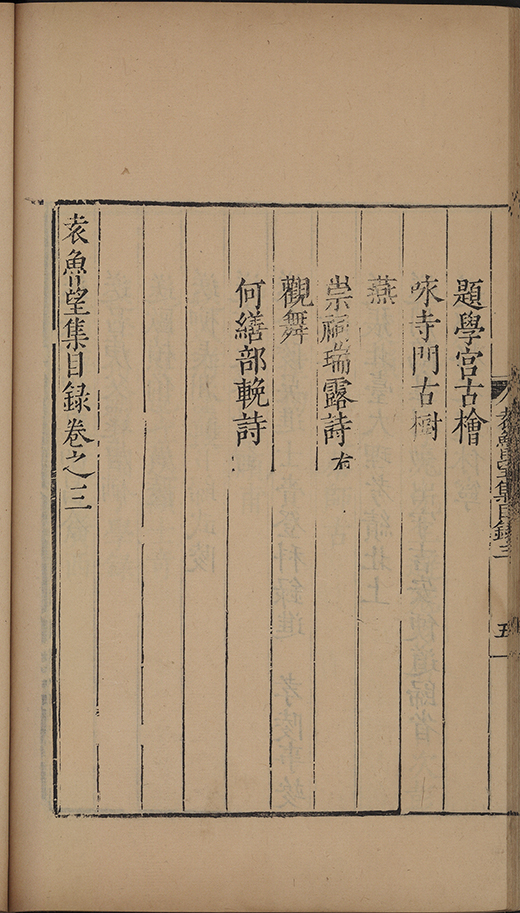 題學宮古檜
咏寺門古樹
燕
崇福瑞露詩有
觀舞
何繕部輓詩
袁魯望集目録卷之三
袁魯望集目録三
五